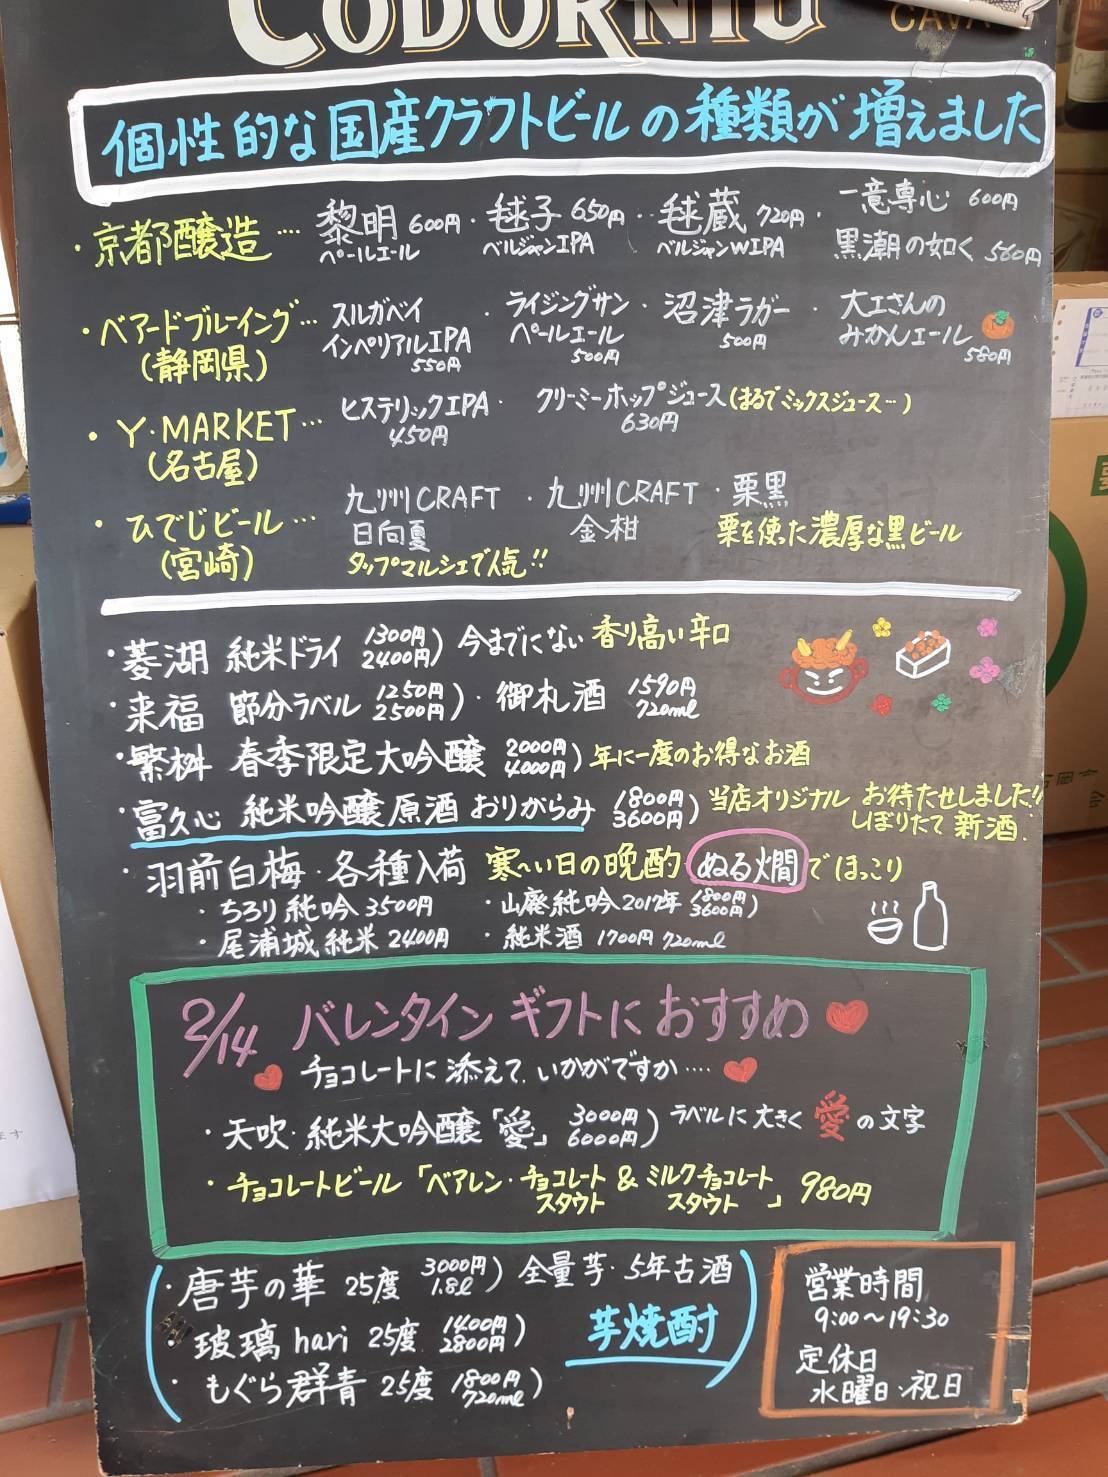 CODORNIU
CAVA
個性的な国産クラフトビールの種類が増えました
・京都醸造 ‥‥ 黎明 600円 ・ 毬子 650円 ・ 毬蔵 720円 ・ 一意専心 600円
ペールエール ベルジャンIPA ベルジャンWIPA 黒潮の如く 560円
・ベアードブルーイング… スルガベイ ・ ライジングサン ・ 沼津ラガー ・ 大工さんの
(静岡県) インペリアルIPA ペールエール 500円 みかんエール
550円 500円 580円
・Y.MARKET… ヒステリックIPA ・ クリーミーホップジュース(まるでミックスジュース…)
(名古屋) 450円 630円
・ひでじビール… 九州CRAFT ・ 九州CRAFT ・ 栗黒
(宮崎) 日向夏 金柑 栗を使った濃厚な黒ビール
タップマルシェで人気!!
・菱湖 純米ドライ 1300円 2400円) 今までにない 香り高い辛口
・来福 節分ラベル 1250円 2500円) ・御札酒 1590円 720ml
・繁桝 春季限定大吟醸 2000円 4000円) 年に一度のお得なお酒
・富久心 純米吟醸原酒 おりがらみ 1800円 3600円) 当店オリジナル お待たせしました!!
しぼりたて新酒!
・羽前白梅・各種入荷 寒〜い日の晩酌・ぬる燗でほっこり
・ちろり純吟 3500円 ・山廃純吟2017年 1800円 3600円)
・尾浦城 純米 2400円 ・純米酒 1700円 720ml
2/14 バレンタイン ギフトにおすすめ
チョコレートに添えて、いかがですか‥‥
・天吹・純米大吟醸「愛」 3000円 6000円) ラベルに大きく 愛 の文字
・チョコレートビール「ベアレン・チョコレート & ミルクチョコレート 」980円
スタウト スタウト
・唐芋の華 25度 3000円 1.8l) 全量芋・5年古酒
・玻璃 hari 25度 1400円 2800円)
・もぐら群青 25度 1800円 720ml)
芋焼酎
営業時間
9:00〜19:30
定休日
水曜日・祝日
ます